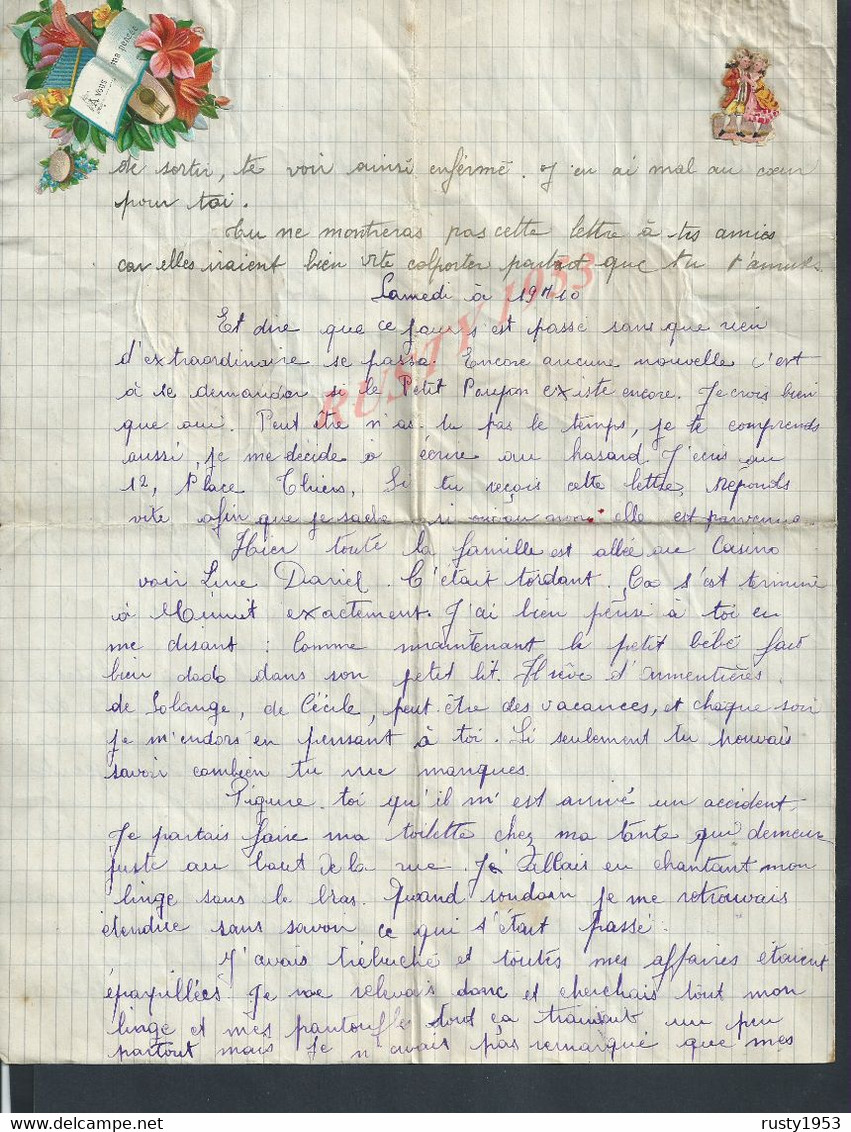 A vous
ma pensée
de sortir, te voir ainsi enfermé. J'en ai mal au coeur
pour toi.
Tu ne montreras pas cette lettre à tes amies
car elles iraient bien vite colporter partout que tu t'amuses.
Samedi à 19H10
Et dire que ce jour s'est passé sans que rien
d'extraordinaire se passa. Encore aucune nouvelle c'est
à se demander si le Petit Poupon existe encore. Je crois bien
que oui. Peut être n'as-tu pas le temps, je te comprends
aussi, je me décide à écrire au hasard. J'écris au
12, Place Thiers, Si tu reçois cette lettre, Réponds
vite afin que je sache si oui ou non elle est parvenue.
Hier toute la famille est allée au Casino
voir Line Dariel. C'était tordant. Ça s'est terminé
à Minuit exactement. J'ai bien pensé à toi en
me disant : Comme maintenant le petit bébé fait
bien dodo dans son petit lit. Il rêve d'Armentières,
de Solange, de Cécile, peut-être des vacances, et chaque soir
je m'endors en pensant à toi. Si seulement tu pouvais
savoir combien tu me manques.
Figure-toi qu'il m'est arrivé un accident.
Je partais faire ma toilette chez ma tante qui demeure
juste au bout de la rue. Je allais en chantant mon
linge sous le bras. Quand soudain je me retrouvais
étendue sans savoir ce qui s'était passé.
J'avais trébuché et toutes mes affaires étaient
éparpillées. Je me relevais donc et cherchais tout mon
linge et mes pantoufle tout ça traînait un peu
partout mais je n'avais pas remarqué que mes
RUSTY1953
rusty1953